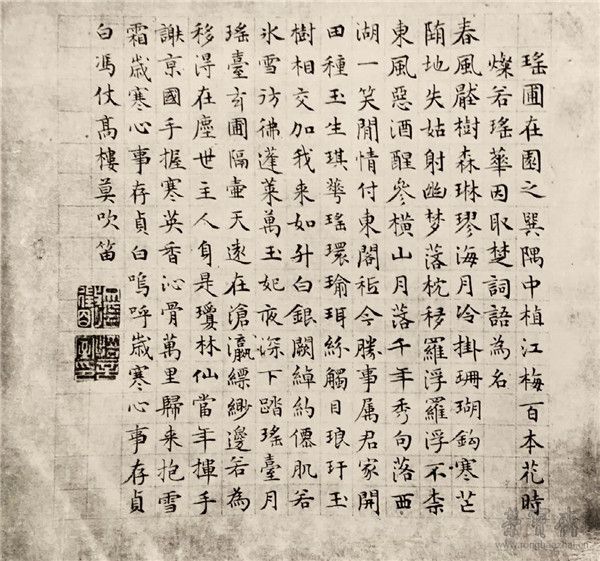 瑤圃在園之巽隅中植江梅百本花時
燦若瑤華因取楚詞語為名
春風壓樹森琳璆海月冷掛珊瑚鈎寒芒
隋地失姑射幽梦落枕移羅浮羅浮不柰
東風惡酒醒參橫山月落千年秀句落西
湖一笑閒情付東閣秪今勝事属君家開
田種玉生琪華瑤環瑜珥紛觸目琅玕玉
樹相交加我来如升白銀闕綽約僊肌若
氷雪彷彿蓬萊萬玉妃夜深下踏瑤臺月
瑤臺玄圃隔壷天遠在滄瀛縹緲邊若為
移得在塵世主人自是瓊林仙當年揮手
謝京國手握寒英香沁骨萬里歸来抱雪
霜歲寒心事存貞白嗚呼歲寒心事存貞
白馮仗高樓莫吹笛
www.rongbaozhai.cn